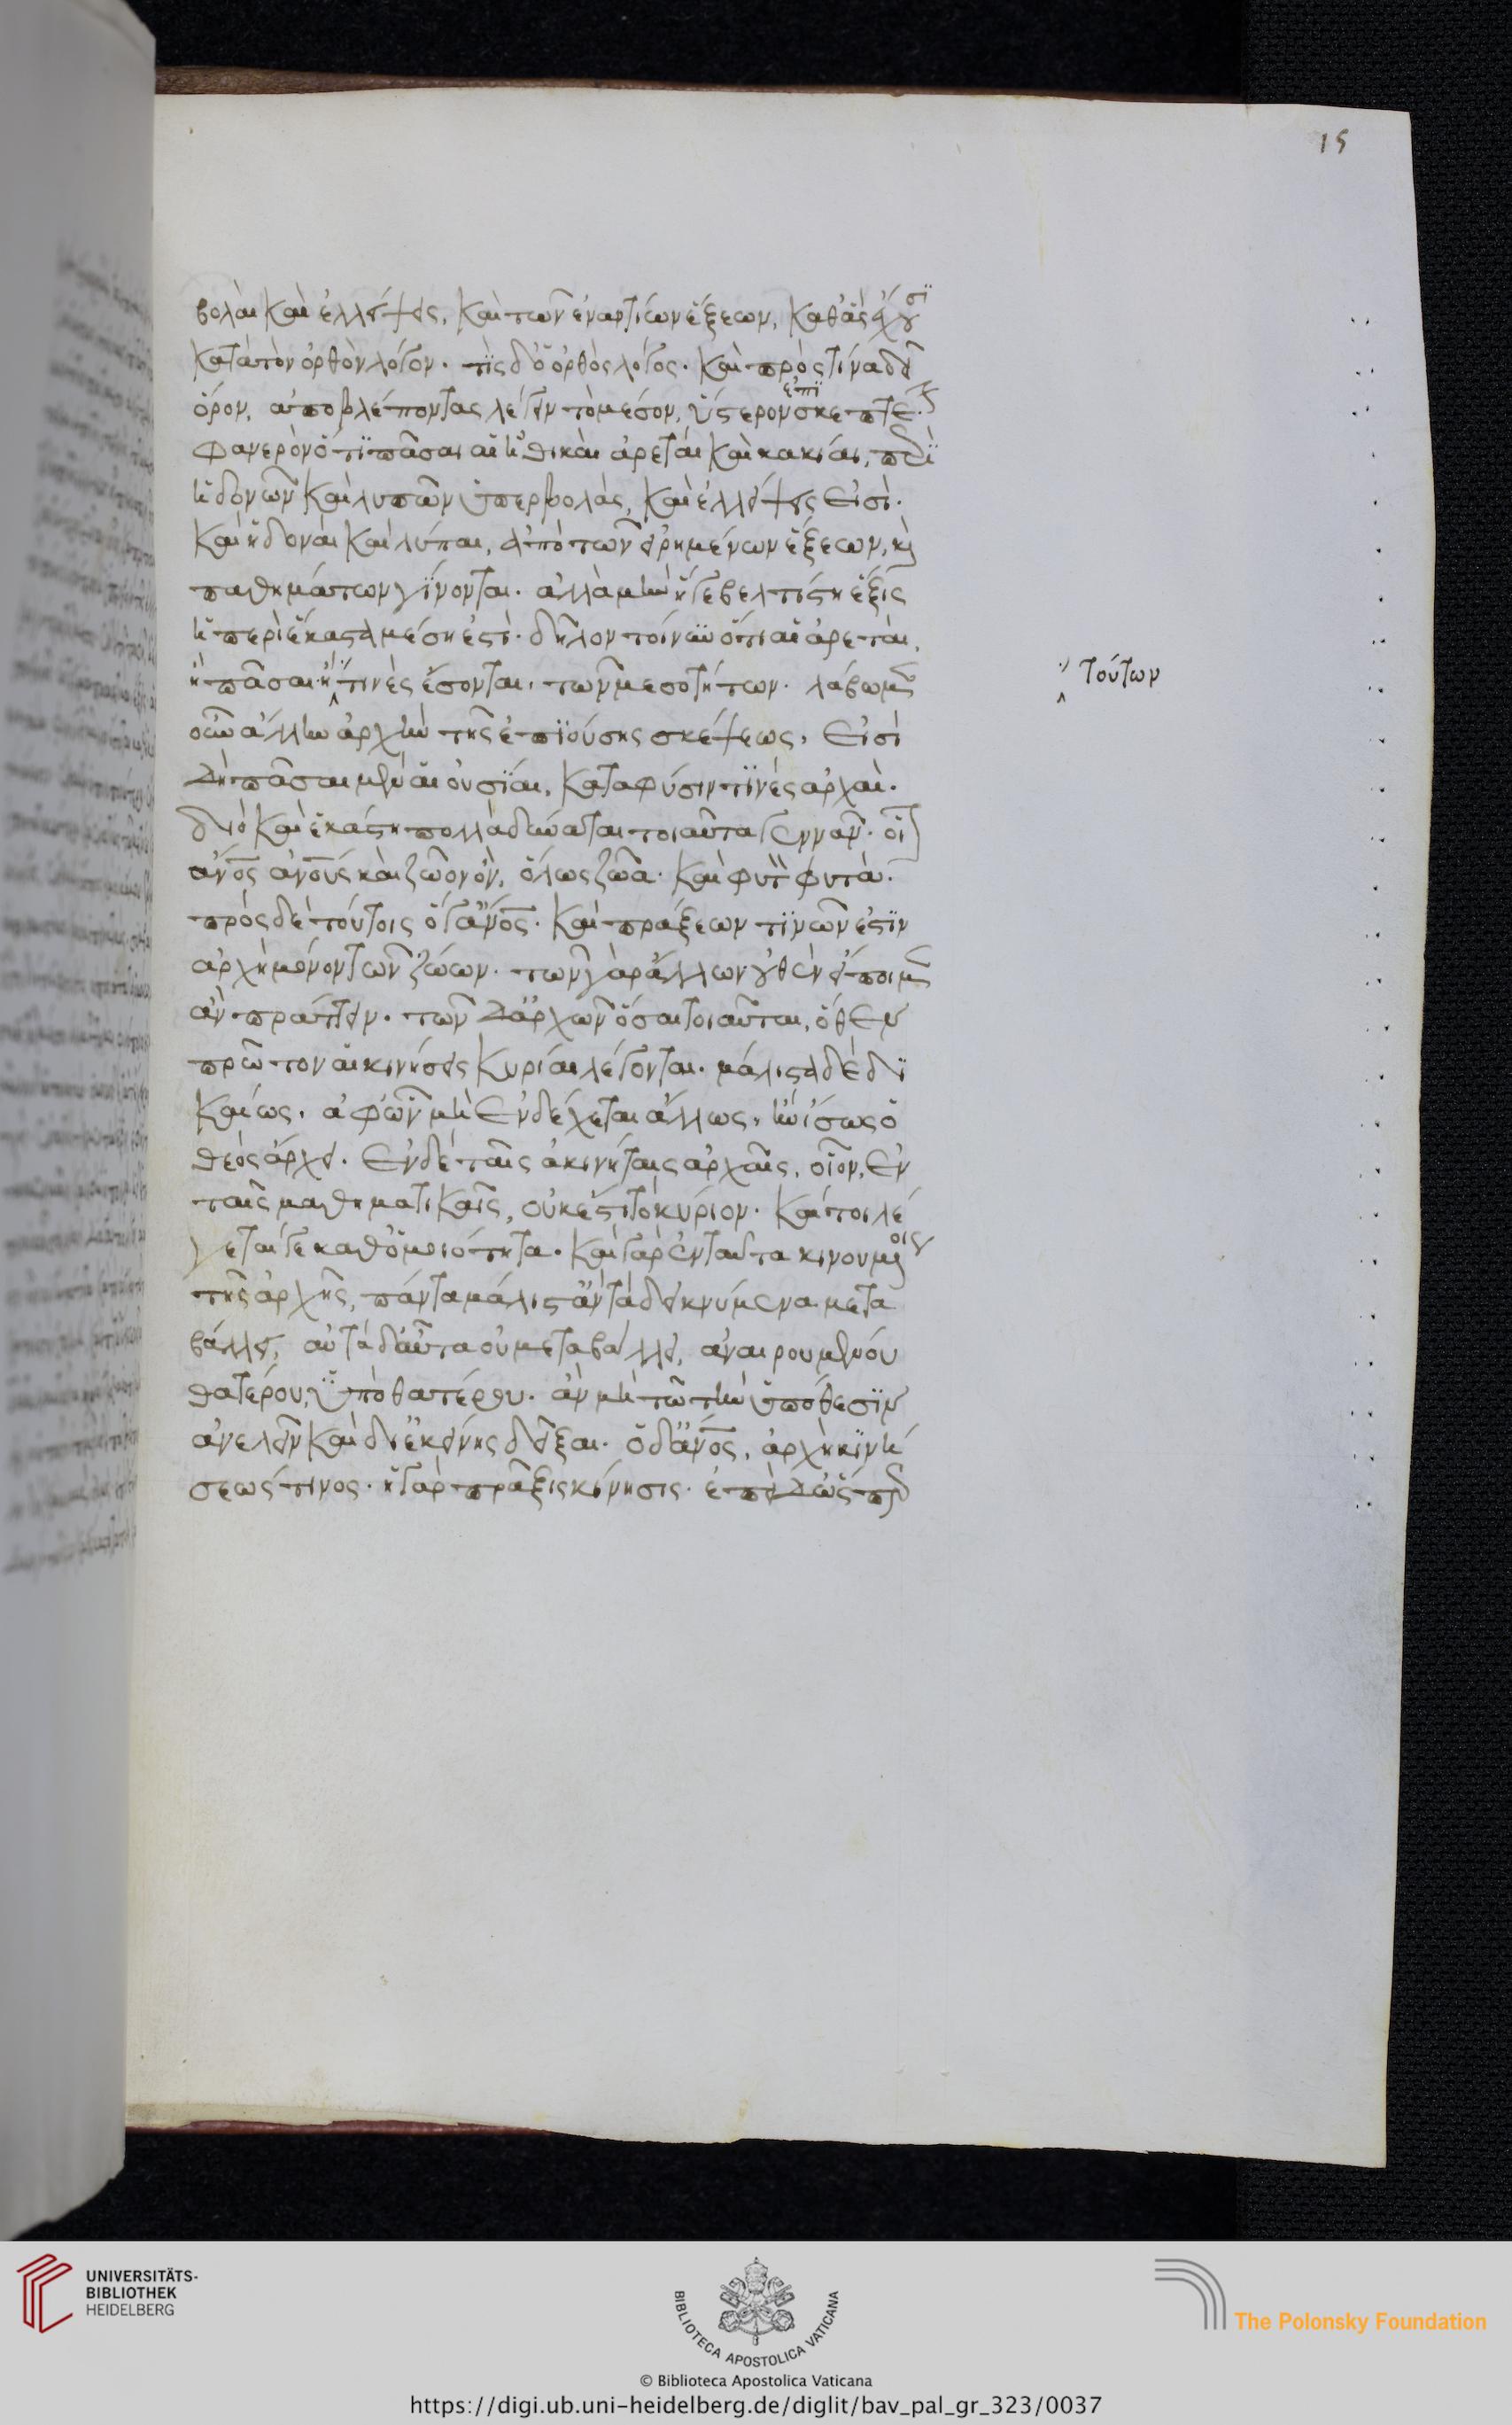 15
βολαὶ καὶ ἐλλείψεις, καὶ τῶν ἐναντίων ἕξεων, καθ' ἃς ἔχουσι
κατὰ τὸν ὀρθὸν λόγον. τίς δ' ὁ ὀρθὸς λόγος. καὶ πρὸς τίνα δεῖ
ὅρον, ἀποβλέποντας λέγειν τὸ μέσον, ὕστερον ἐπισκεπτέον.
φανερὸν ὅτι πᾶσαι αἱ ἠθικαὶ ἀρεταὶ καὶ κακίαι, περὶ
ἡδονῶν καὶ λυπῶν ὑπερβολὰς, καὶ ἐλλείψεις εἰσὶ.
καὶ ἡδοναὶ καὶ λύπαι, ἀπὸ τῶν εἰρημένων ἕξεων, καὶ
παθημάτων γίνονται. ἀλλὰ μὴν ἥ γε βελτίστη ἕξις
ἡ περὶ ἕκαστα μέση ἐστὶ. δῆλον τοίνυν ὅτι αἱ ἀρεταὶ,
ἢ πᾶσαι ἢ τινὲς ἔσονται, τῶν μεσοτήτων. λάβωμεν
τούτων
οὖν ἄλλην ἀρχὴν τῆς ἐπιούσης σκέψεως, εἰσὶ
δὴ πᾶσαι μὲν αἱ οὐσίαι, κατὰ φύσιν τινὲς ἀρχαὶ.
διὸ καὶ ἑκάστη πολλὰ δύναται τοιαῦτα γεννᾶν. οἷον
ἄνος ἀνους καὶ ζῶον ὂν, ὅλως ζῶα. καὶ φυτὸν φυτὰ.
πρὸς δὲ τούτοις ὅ γ' ἄνος. καὶ πράξεων τινῶν ἐστιν
ἀρχὴ μόνον τῶν ζώων. τῶν γὰρ ἄλλων οὐθὲν εἴποιμεν
ἂν πράττειν. τῶν δ' ἀρχῶν ὅσαι τοιαῦται, ὅθεν
πρῶτον αἱ κινήσεις κυρίαι λέγονται. μάλιστα δὲ δι
καίως. ἀφ' ὧν μὴ ἐνδέχεται ἄλλως, ἣν ἴσως ὁ
θεὸς ἄρχει. ἐν δὲ ταῖς ἀκινήταις ἀρχαῖς, οἷον, ἐν
ταῖς μαθηματικαῖς, οὐκ ἔστι τὸ κύριον. καί τοι λέ
γεταί γε καθ' ὁμοιότητα. καὶ γὰρ ἐνταῦτα κινουμένοις
τῆς ἀρχῆς, πάντα μάλιστ' ἂν τὰ δεικνύμενα μετα
βάλλει, αὐτὰ δ' αὑτὰ οὐ μεταβάλλει, ἀναιρουμένου
θατέρου, ὑπὸ θατέρου. ἂν μὴ τῶ τὴν ὑπόθεσιν
ἀνελεῖν καὶ δι' ἐκείνης δεῖξαι. ὁ δ' ἄνος, ἀρχὴ κινή
σεώς τινος. ἡ γὰρ πρᾶξις κίνησις. ἐπεὶ δ' ὥσπερ
UNIVERSITÄTS-
BIBLIOTHEK
HEIDELBERG
BIBLIOTECA APOSTOLICA VATICANA
The Polonsky Foundation
© Biblioteca Apostolica Vaticana
https://digi.ub.uni-heidelberg.de/diglit/bav_pal_gr_323/0037